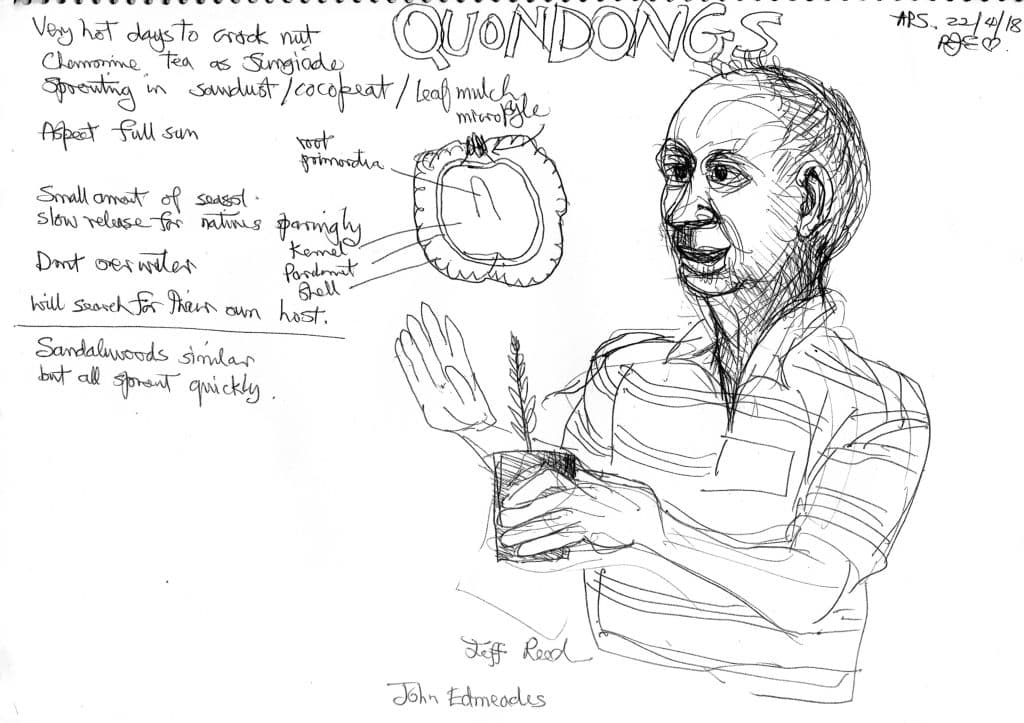 QUONDONGS
APS. 22/4/18
Very hot days to crack nut
Chamomine tea as fungiade
Sprouting in sawdust/cocopeat/leaf mulch
micropyle
Aspect full sun
root
primordia
Small amont of seasol.
slow release for natives sparingly
Kernel
Shell
Dont over water
will search for their own host.
Sandalwoods similar
but all sprout quickly.
Jeff Reed
John Edmeades